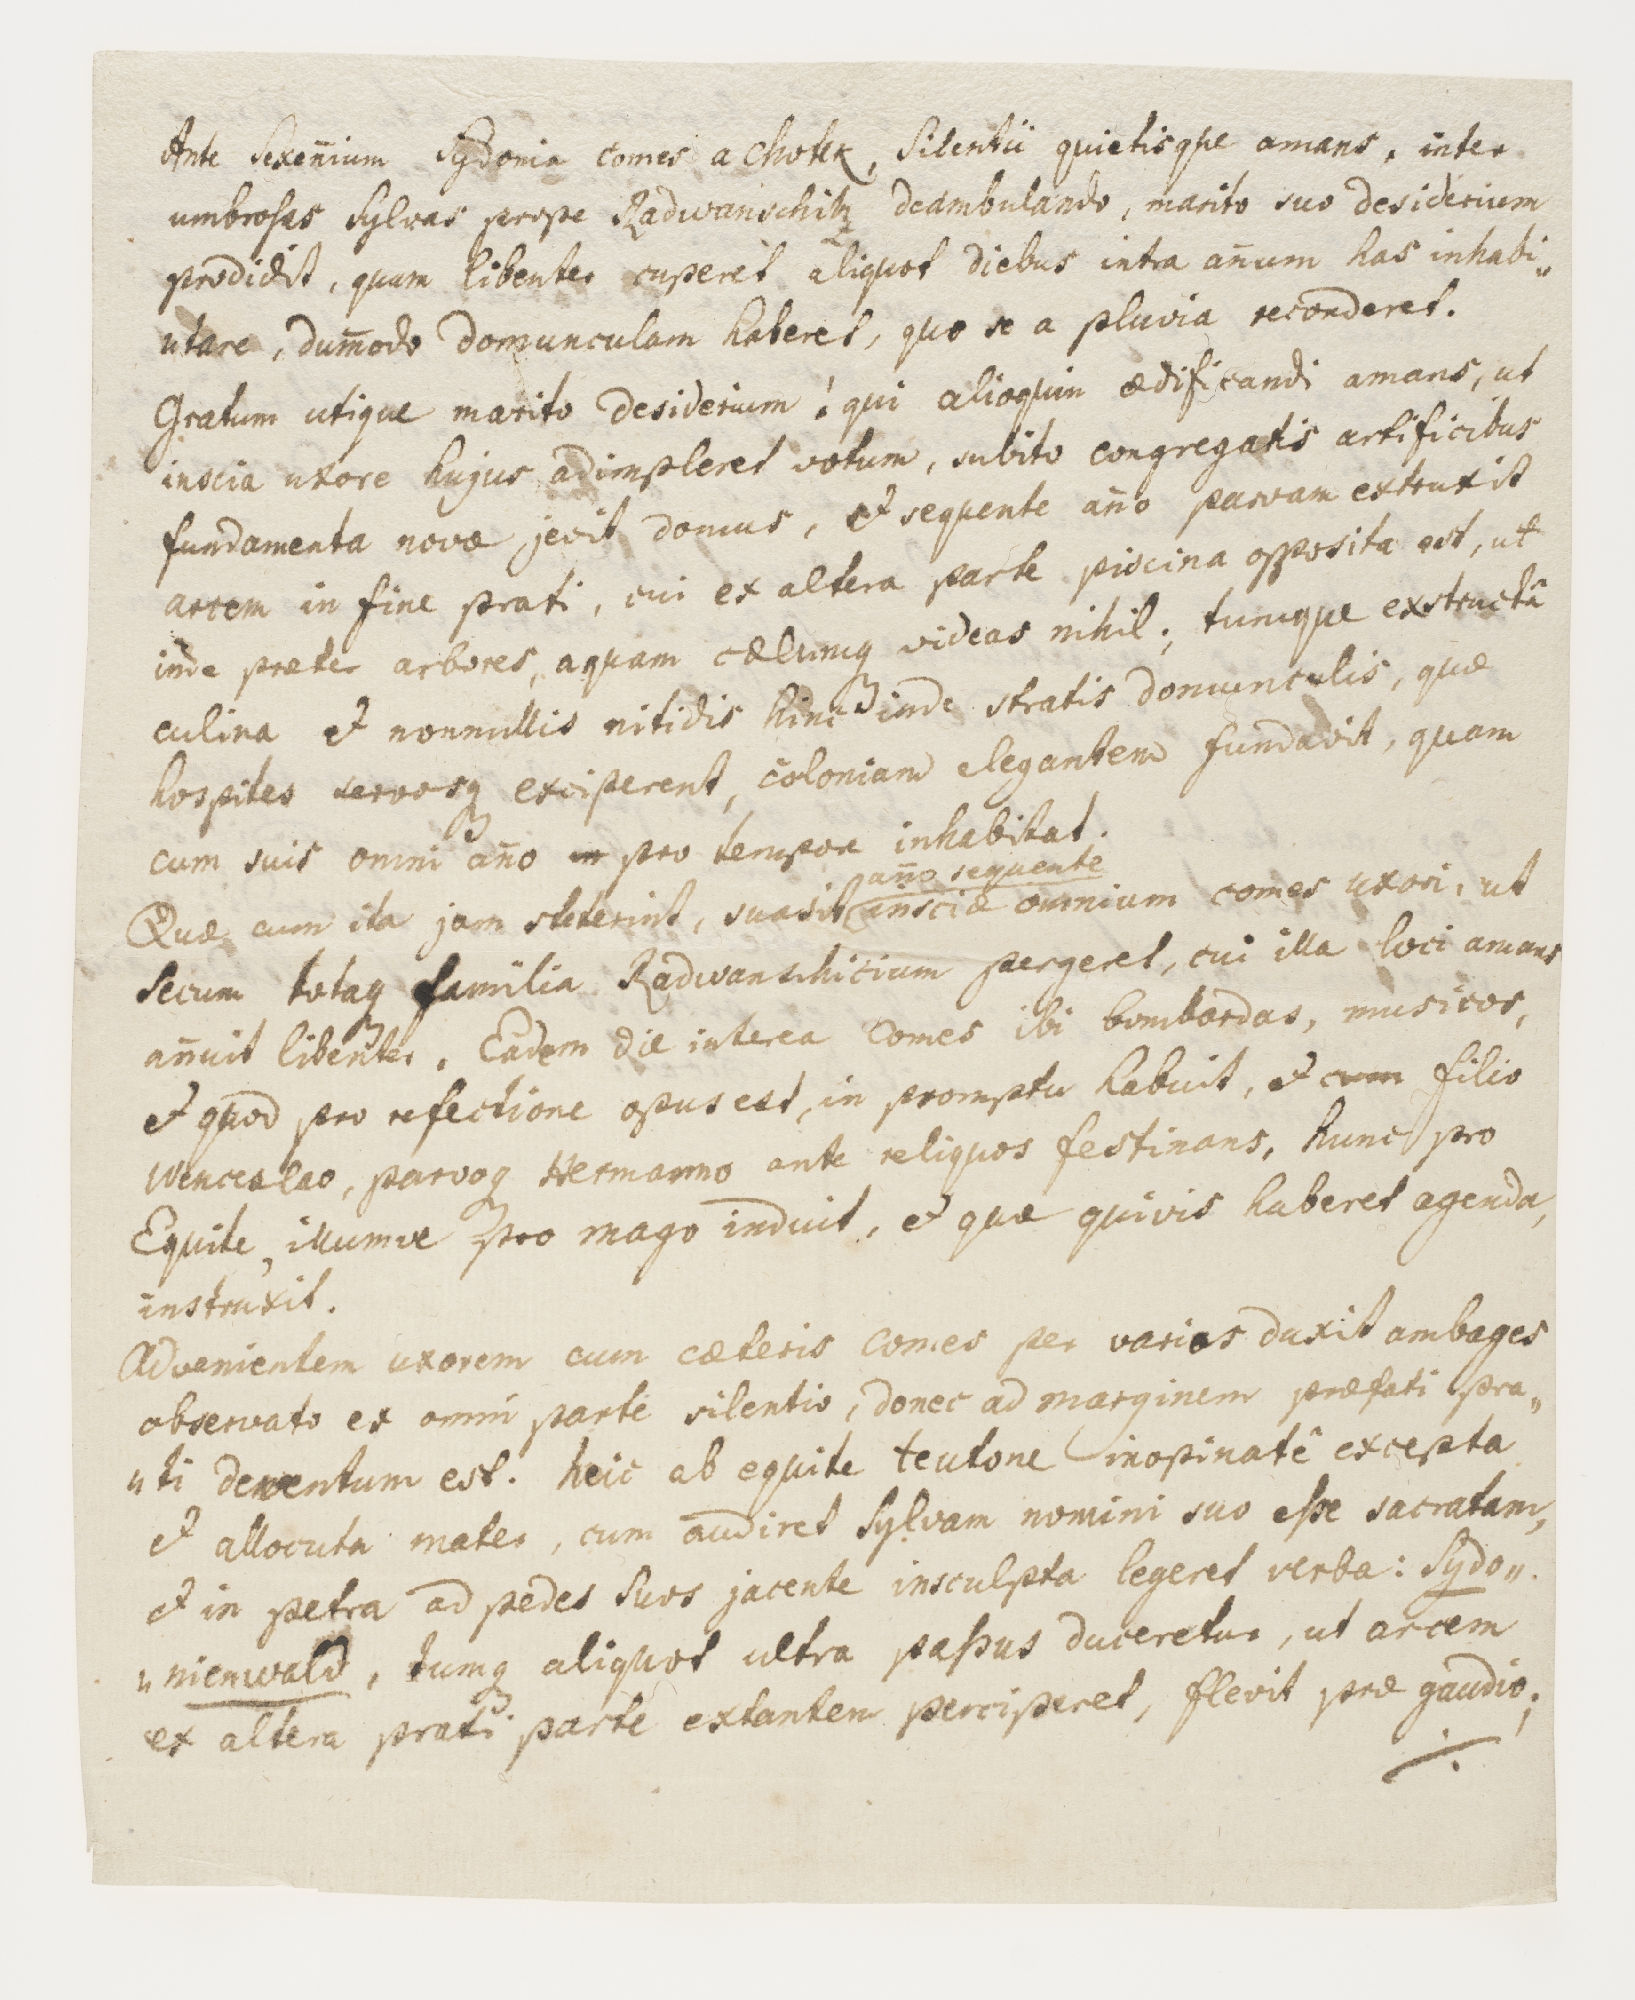 Ante Sexen̄ium Sydonia comes a Chotek, Silentii quietisque amans, inter
umbrosas Sylvas prope Radwanschitz deambulando, marito suo desiderium
prodidit, quam libenter cuperet aliquot diebus intra an̄um has inhabi„
„tare, dum̄odo domunculam haberet, quo se a pluvia reconderet.
Gratum utique marito desiderium! qui alioquin ædificandi amans, ut
inscia uxore hujus adimpleret votum, subito congregatis artificibus
fundamenta novæ jecit domus, et sequente an̄o parvam extruxit
arcem in fine prati, cui ex altera parte piscina opposita est, ut
inde præter arbores, aquam cælumq videas nihil; tumque exstructâ
culina et nonnullis nitidis hinc inde stratis domunculis, quæ
hospites servosq exciperent, coloniam elegantem fundavit, quam
cum suis omni an̄o in pro tempore inhabitat.
an̄o sequente
Quæ cum ita jam steterint, suasit insciæ omnium comes uxori, ut
secum totaq familia Radwanschicium pergeret, cui illa loci amans
an̄uit libenter. Eadem die interea Comes ibi bombardas, musicos,
et quod pro refectione opus est, in promptu habuit, et cum filio
Wenceslao, parvoq Hermanno ante reliquos festinans, hunc pro
Equite, illumve pro mago induit, et quæ quivis haberet agenda,
instruxit.
Advenientem uxorem cum cæteris Comes per varias duxit ambages
observato ex omni parte silentio, donec ad marginem præfati pra„
„ti deventum est. heic ab equite teutone inopinatê excepta
et allocuta mater, cum audiret Sylvam nomini suo eſse sacratam,
et in petra ad pedes suos jacente insculpta legeret verba: Sydo„
„nienwald, tumq aliquot ultra paſsus duceretur, ut arcem
ex altera prati parte extantem perciperet, flevit præ gaudio;
./.